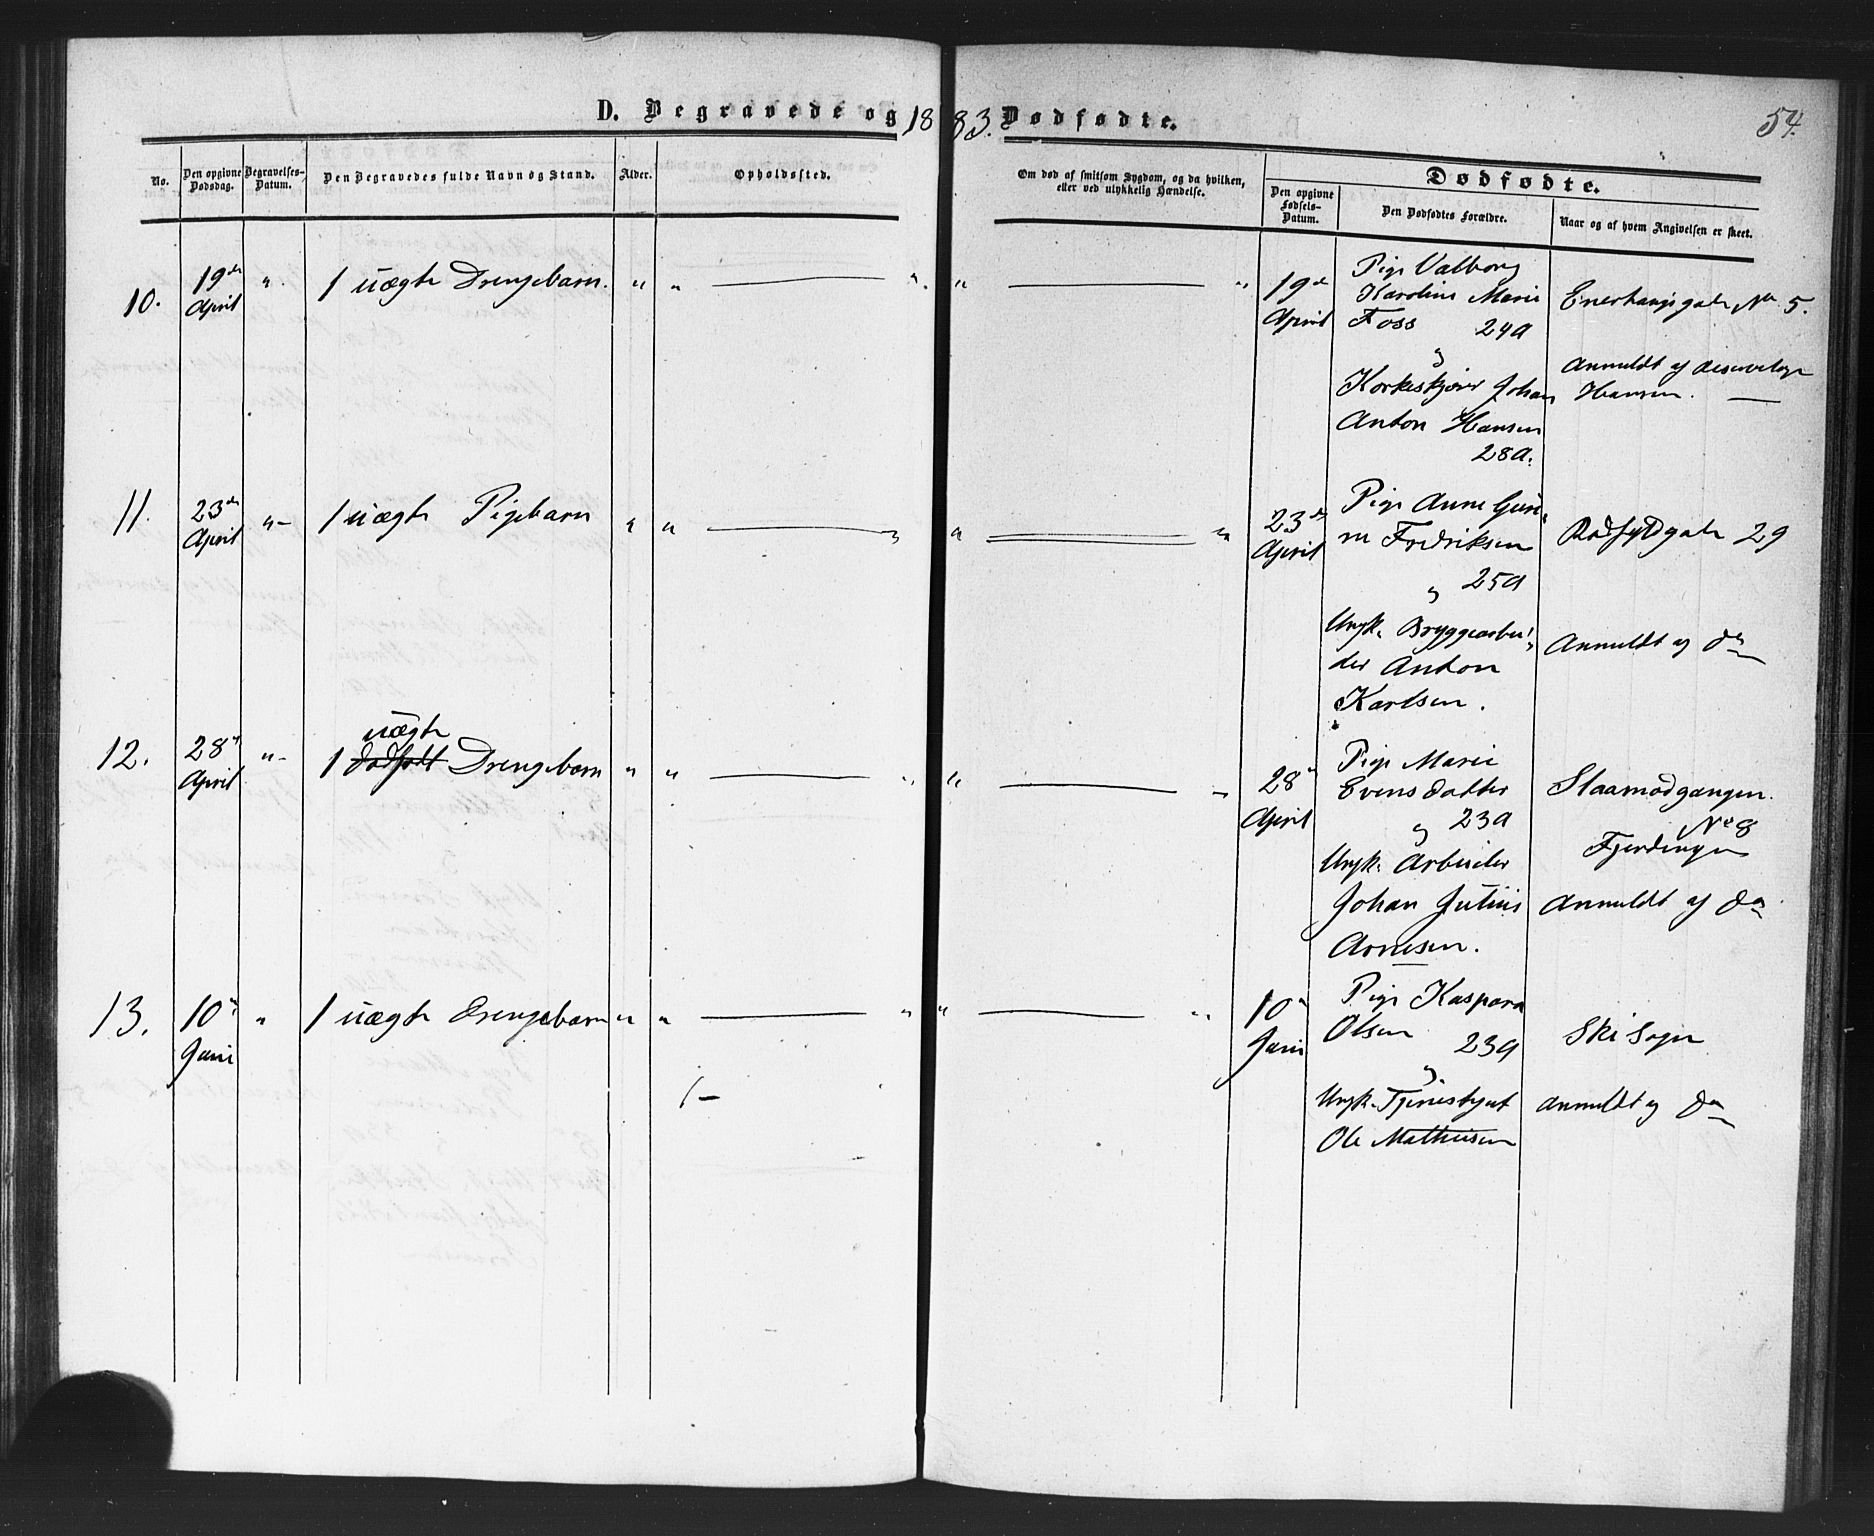 D. Begravede og 1883. Dødfødte.
54.
No.
Den opgivne Dødsdag.
Begravelses-Datum.
Den Begravedes fulde Navn og Stand.
Alder.
Opholdssted.
Om død af smitsom Sygdom, og da hvilken,
eller ved ulykkelig Hændelse.
Dødfødte.
Den opgivne Fødsels-Datum.
Den Dødfødtes Forældre.
Naar og af hvem Angivelsen er skeet.
10.
19de April
"
1 uægte Drengebarn.
" " — " " — "
19de April
Pige Valborg
Karoline Marie
Foss 24a
og
Korkeskjærer Johan
Anton Hansen
28a.
Enerhaugsgade No 5.
Anmeldt af
Hansen. —
11.
23de April
" -
1 uægte Pigebarn
" " — " " — "
23de April
Pige Anne Gu
Fredriksen
og 25a
Ungk. Bryggearbei-
der Anton
Karlsen.
gade 29
Anmeldt af do
12.
28" April
" -
uægte
1 dødfødt Drengebarn
" " — " " — "
28" April
Pige Marie
Evensdatter
og 23a
Ungk. Arbeider
Johan Julius
Arnesen.
Slaamodgangen.
No 8
Fjerdingen
Anmeldt af do
13.
10" Juni
"
1 uægte Drengebarn
" " — " " — "
10" Juni
Pige Kaspara
Olsen 23a
og
Ungk. Tjenestgut
Ole Mathiesen
Ski Sogn
anmeldt af do
/-